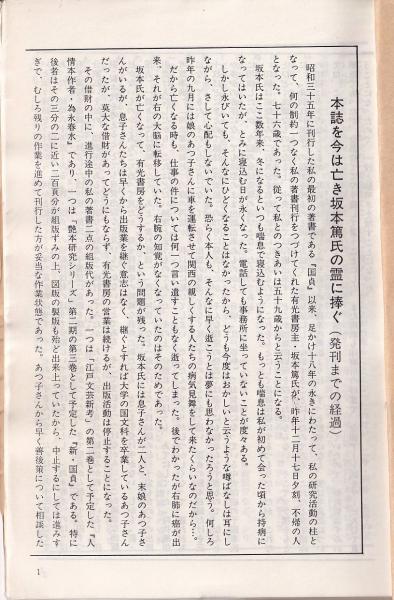 本誌を今は亡き坂本篤氏の霊に捧ぐ(発刊までの経過)
昭和三十五年に刊行した私の最初の著書である『国貞』以来、足かけ十八年の永きにわたって、私の研究活動の柱と
なって、何の制約一つなく私の著書刊行をつづけてくれた有光書房主・坂本篤氏が、昨年十二月十七日夕刻、不帰の人
となった。七十六歳であった。従って私とのつきあいは五十九歳からと云うことになる。
坂本氏はここ数年来、冬になるといつも喘息で寝込むようになった。もっとも喘息は私が初めて会った頃から持病に
なってはいたが、とみに寝込む日が永くなった。電話しても事務所に坐っていないことが度々ある。
しかし永びいても、そんなにひどくなることはなかったから、どうも今度はおかしいと云うような噂ばなしは耳にし
ながら、さして心配もしないでいた。恐らく本人も、そんなに早く逝こうとは夢にも思わなかったろうと思う。何しろ
昨年の九月には娘のあつ子さんに車を運転させて関西の親しくする人たちの病気見舞をして来たくらいなのだから…。
だから亡くなる時も、仕事の件については何一つ言い遺すこともなく逝ってしまった。後でわかったが右肺に癌が出
来、それが右の大脳に転移していた。右腕の知覚がなくなっていたのはそのためであった。
坂本氏が亡くなって、有光書房をどうするか、という問題が残った。坂本氏には息子さんが二人と、末娘のあつ子さ
んがいるが、息子さんたちは早くから出版業を継ぐ意志はなく、継ぐとすれば大学の国文科を卒業しているあつ子さん
だったが、莫大な借財があってどうにもならず、有光書房の営業は続けるが、出版活動は停止することになった。
その借財の中に、進行途中の私の著書二点の組版代があった。一つは「江戸文芸新考」の第二巻として予定した『人
情本作者・為永春水』であり、一つは「艶本研究シリーズ」第二期の第三巻として予定した『新・国貞』である。特に
後者はその三分の二に近い二百頁分が組版ずみの上、図版の製版も殆ど出来上っていたから、中止するにしては進みす
ぎで、むしろ残りの作業を進めて刊行した方が妥当な作業状態であった。あつ子さんから早く善後策について相談した
1